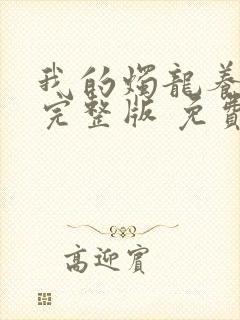 我的燭龍養
完整版 免費
高迎賓